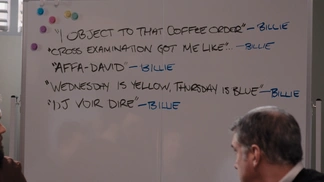 "I OBJECT TO THAT COFFEE ORDER" - BILLIE
"CROSS EXAMINATION GOT ME LIKE".. - BILLIE
"AFFA-DAVID" - BILLIE
"WEDNESDAY IS YELLOW, THURSDAY IS BLUE" - BILLIE
"DJ VOIR DIRE" - BILLIE